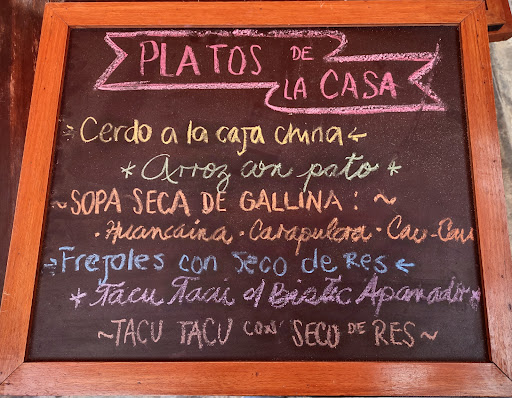 PLATOS DE
LA CASA
Cerdo a la caja china
* Arroz con pato *
~SOPA SECA DE GALLINA: ~
·Huancaina·Carapulcra·Cau-Cau
Frejoles con Seco de Res
*Tacu Tacu a/ Bistec Apanado*
~TACU TACU con SECO DE RES~